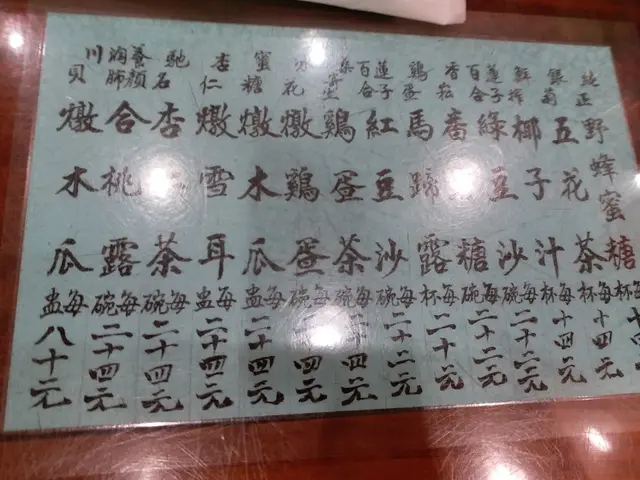 純正野蜂蜜
五花茶每杯十四元
鮮搾椰子汁每杯十四元
百合蓮子綠豆沙每碗二十二元
番糖每碗二十二元
鷄蛋馬蹄露每杯二十元
百合蓮子紅豆沙每碗二十二元
鷄蛋茶每碗二十四元
花燉鷄蛋每碗二十四元
蜜糖燉木瓜每盅二十四元
杏仁燉雪耳每盅二十四元
馳杏茶每碗二十四元
養顏潤肺合桃露每碗二十四元
川貝燉木瓜每盅八十元